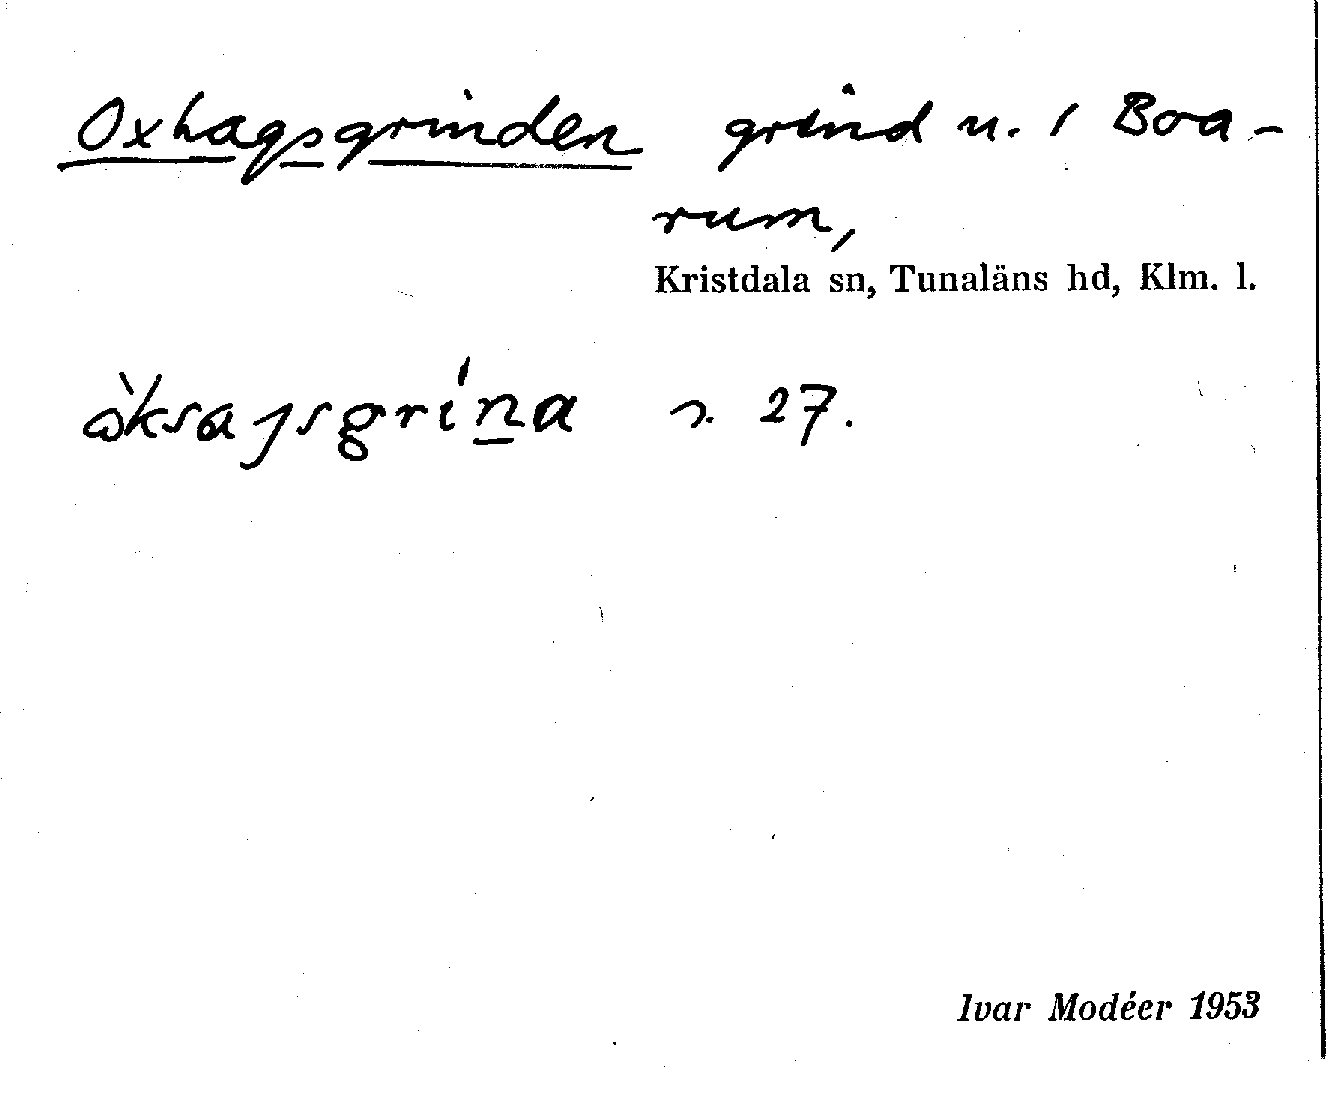 Oxhagsgrinden grind u. / Boa-
rum,
Kristdala sn, Tunaläns hd, Klm. l.
s. 27.
Ivar Modéer 1953